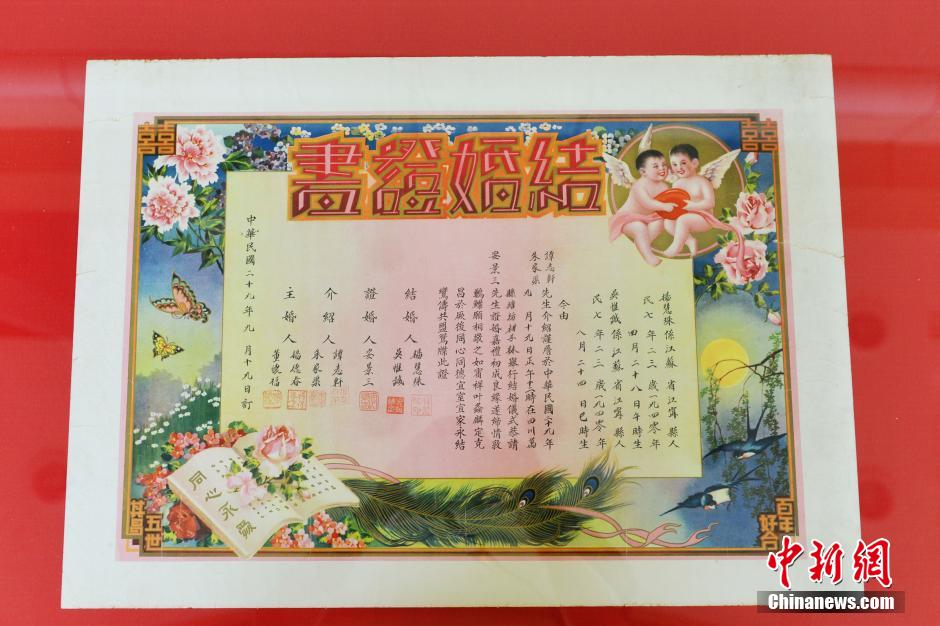 囍
囍
結婚證書
楊慧珠係江蘇省江寧縣人
民七年二三歲一九四〇年
四月二十八日午時生
吳惟誠係江蘇省江寧縣人
民七年二三歲一九四〇年
八月二十四日巳時生
今由
譚志軒
朱家榘
先生介紹謹詹於中華民國二十九年
九月十九日正午十二時在四川萬
林舉行結婚儀式恭請
安景三先生證婚嘉禮初成良緣遂締情敦
鶼鰈願相敬之如賓祥叶螽麟定克
昌於厥後同心同德宜室宜家永結
鸞儔共盟鴛牒此證
結婚人
楊慧珠
吳惟誠
證婚人
安景三
介紹人
譚志軒
朱家榘
主婚人
楊德春
中華民國二十九年九月十九日訂
同心永愛
百年好合
五世其昌
中新网
Chinanews.com